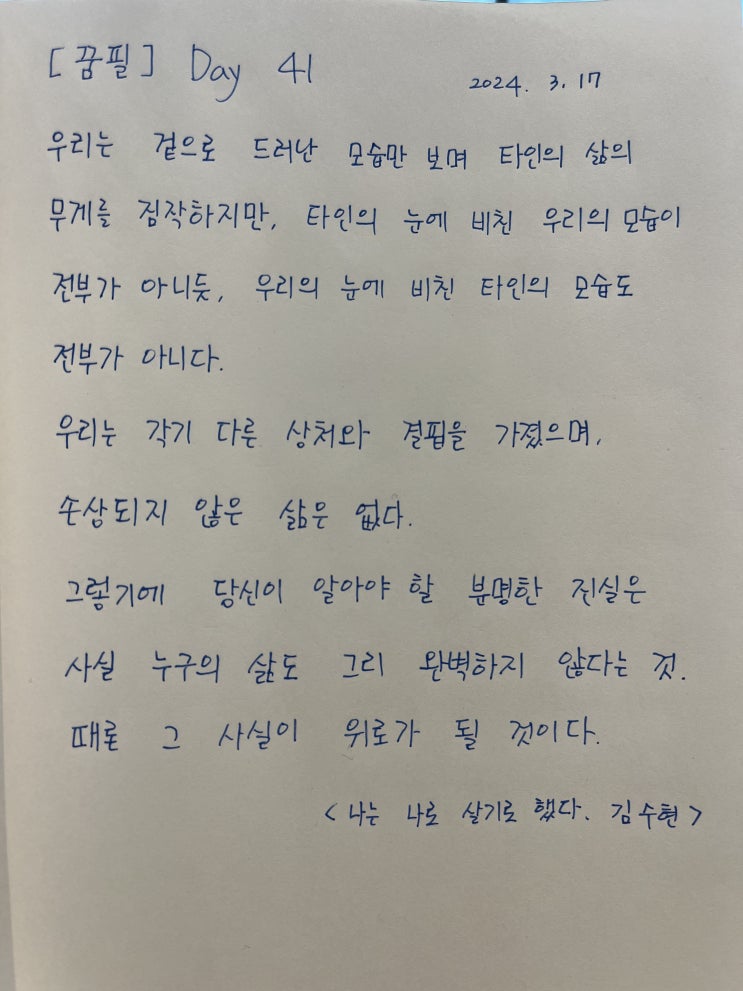 [꿈필] Day 41
2024. 3. 17
우리는 겉으로 드러난 모습만 보며 타인의 삶의
무게를 짐작하지만, 타인의 눈에 비친 우리의 모습이
전부가 아니듯, 우리의 눈에 비친 타인의 모습도
전부가 아니다.
우리는 각기 다른 상처와 결핍을 가졌으며,
손상되지 않은 삶은 없다.
그렇기에 당신이 알아야 할 분명한 진실은
사실 누구의 삶도 그리 완벽하지 않다는 것.
때론 그 사실이 위로가 될 것이다.
<나는 나로 살기로 했다. 김수현>